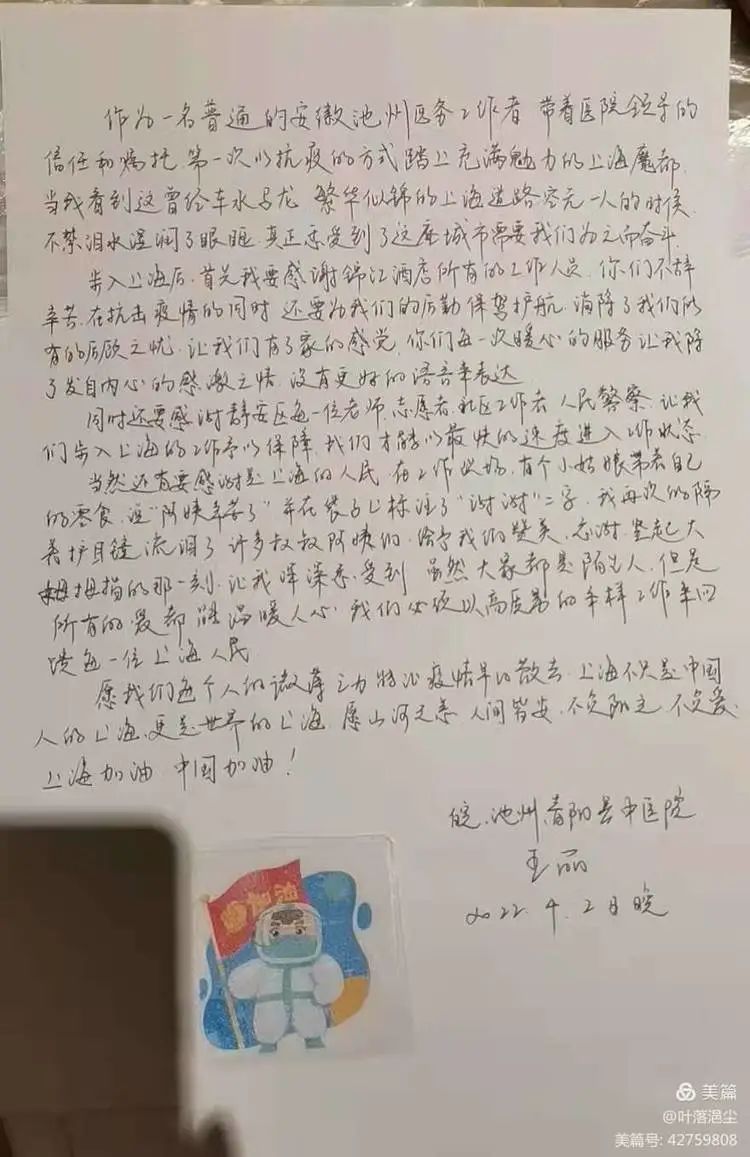 作为一名普通的安徽池州医务工作者 带着医院领导的
信任和嘱托 第一次以抗疫的方式踏上充满魅力的上海魔都.
当我看到这曾经车水马龙 繁华似锦的上海道路空无一人的时候
不禁泪水湿润了眼眶.真正感受到了这座城市需要我们为之而奋斗.
步入上海后.首先我要感谢锦江酒店所有的工作人员.你们不辞
辛苦.在抗击疫情的同时 还要为我们的后勤保驾护航.消除了我们所
有的后顾之忧.让我们有了家的感觉.你们每一次暖心的服务让我除
了发自内心的感激之情.没有更好的语言来表达
同时还要感谢静安区每一位老师.志愿者.社区工作者 人民警察.让我
们步入上海的工作予以保障.我们才能以最快的速度进入工作状态.
当然还有要感谢是上海的人民.在工作现场.有个小姑娘带着自己
的零食.说"阿姨辛苦了"并在袋子上标注了"谢谢"二字.我再次的隔
着护目镜流泪了 许多叔叔阿姨们.给予我们赞美.感谢.竖起大
拇指的那一刻.让我深深感受到 虽然大家都是陌生人.但是
所有的爱都能温暖人心.我们必须以高质量的采样工作来回
馈每一位上海人民
愿我们每个人的微薄之力 疫情早日散去.上海不只是中国
人的上海.更是世界的上海.愿山河无恙 人间皆安.不负 不负爱.
上海加油 中国加油！
皖.池州.青阳县中医院
王丽
2022.4.2日晚
加油
美篇
@叶落浥尘
美篇号: 42759808